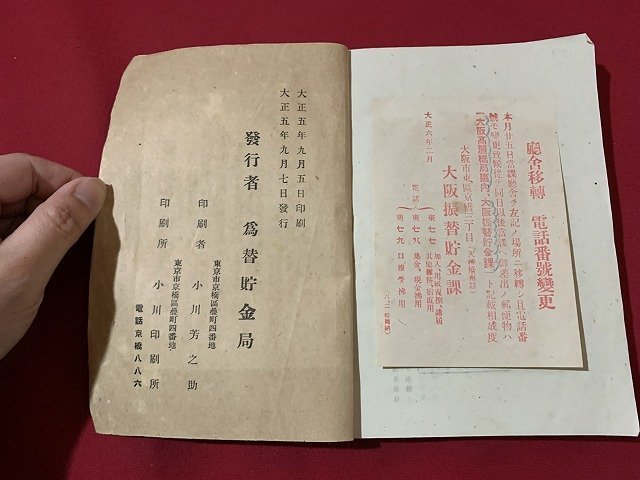 廳舍移轉 電話番號變更
本月廿五日當課廳舍ヲ左記ノ場所ニ移轉シ且電話番
號モ變更致候從テ同日以後當課ヘ御差出ノ郵便物ハ
「大阪高麗橋局區內、大阪振替貯金課」ト記載相成度
大阪市東區京橋三丁目
大阪振替貯金課
電話
東七七
東七八 集金、現金拂用
東七九 口座受拂用
大正六年二月
大正五年九月五日印刷
大正五年九月七日發行
發行者 爲替貯金局
東京市京橋區疊町四番地
印刷者 小川芳之助
東京市京橋區疊町四番地
印刷所 小川印刷所
電話京橋八八六